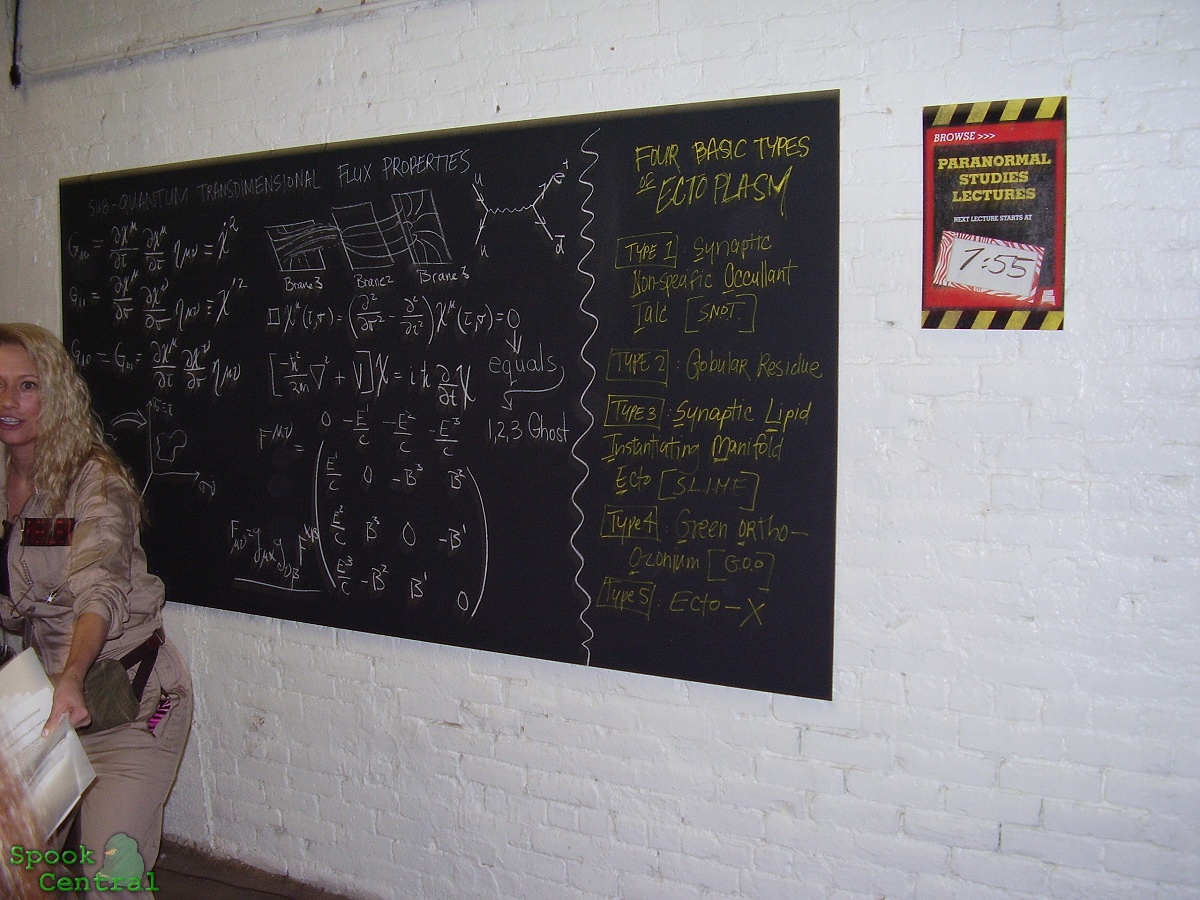 SUB-QUANTUM TRANSDIMENSIONAL FLUX PROPERTIES
G₀₀ = ∂X^μ/∂τ ∂X^ν/∂τ η_μν = Ẋ²
G₁₁ = ∂X^μ/∂σ ∂X^ν/∂σ η_μν = X'²
G₁₀ = G₀₁ = ∂X^μ/∂τ ∂X^ν/∂σ η_μν
Brane 3
Brane 2
Brane 1
u
u
e+
d̅
□X^μ(τ,σ) = (∂²/∂σ² - ∂²/∂τ²) X^μ(τ,σ) = 0
[-ħ²/2m ∇² + V] X = iħ ∂/∂t X
equals
1,2,3 Ghost
F^μν =
0 -E¹/C -E²/C -E³/C
E¹/C 0 -B³ B²
E²/C B³ 0 -B¹
E³/C -B² B¹ 0
FOUR BASIC TYPES
OF ECTOPLASM
TYPE 1 Synaptic
Non-specific Occullant
Talc [SNOT.]
TYPE 2: Gobular Residue
TYPE 3: Synaptic Lipid
Instantiating Manifold
Ecto [S.L.I.M.E]
Type 4: Green Ortho-
Ozonium [G.O.O]
Type 5: Ecto-X
BROWSE >>>
PARANORMAL
STUDIES
LECTURES
NEXT LECTURE STARTS AT
1:55
Spook
Central